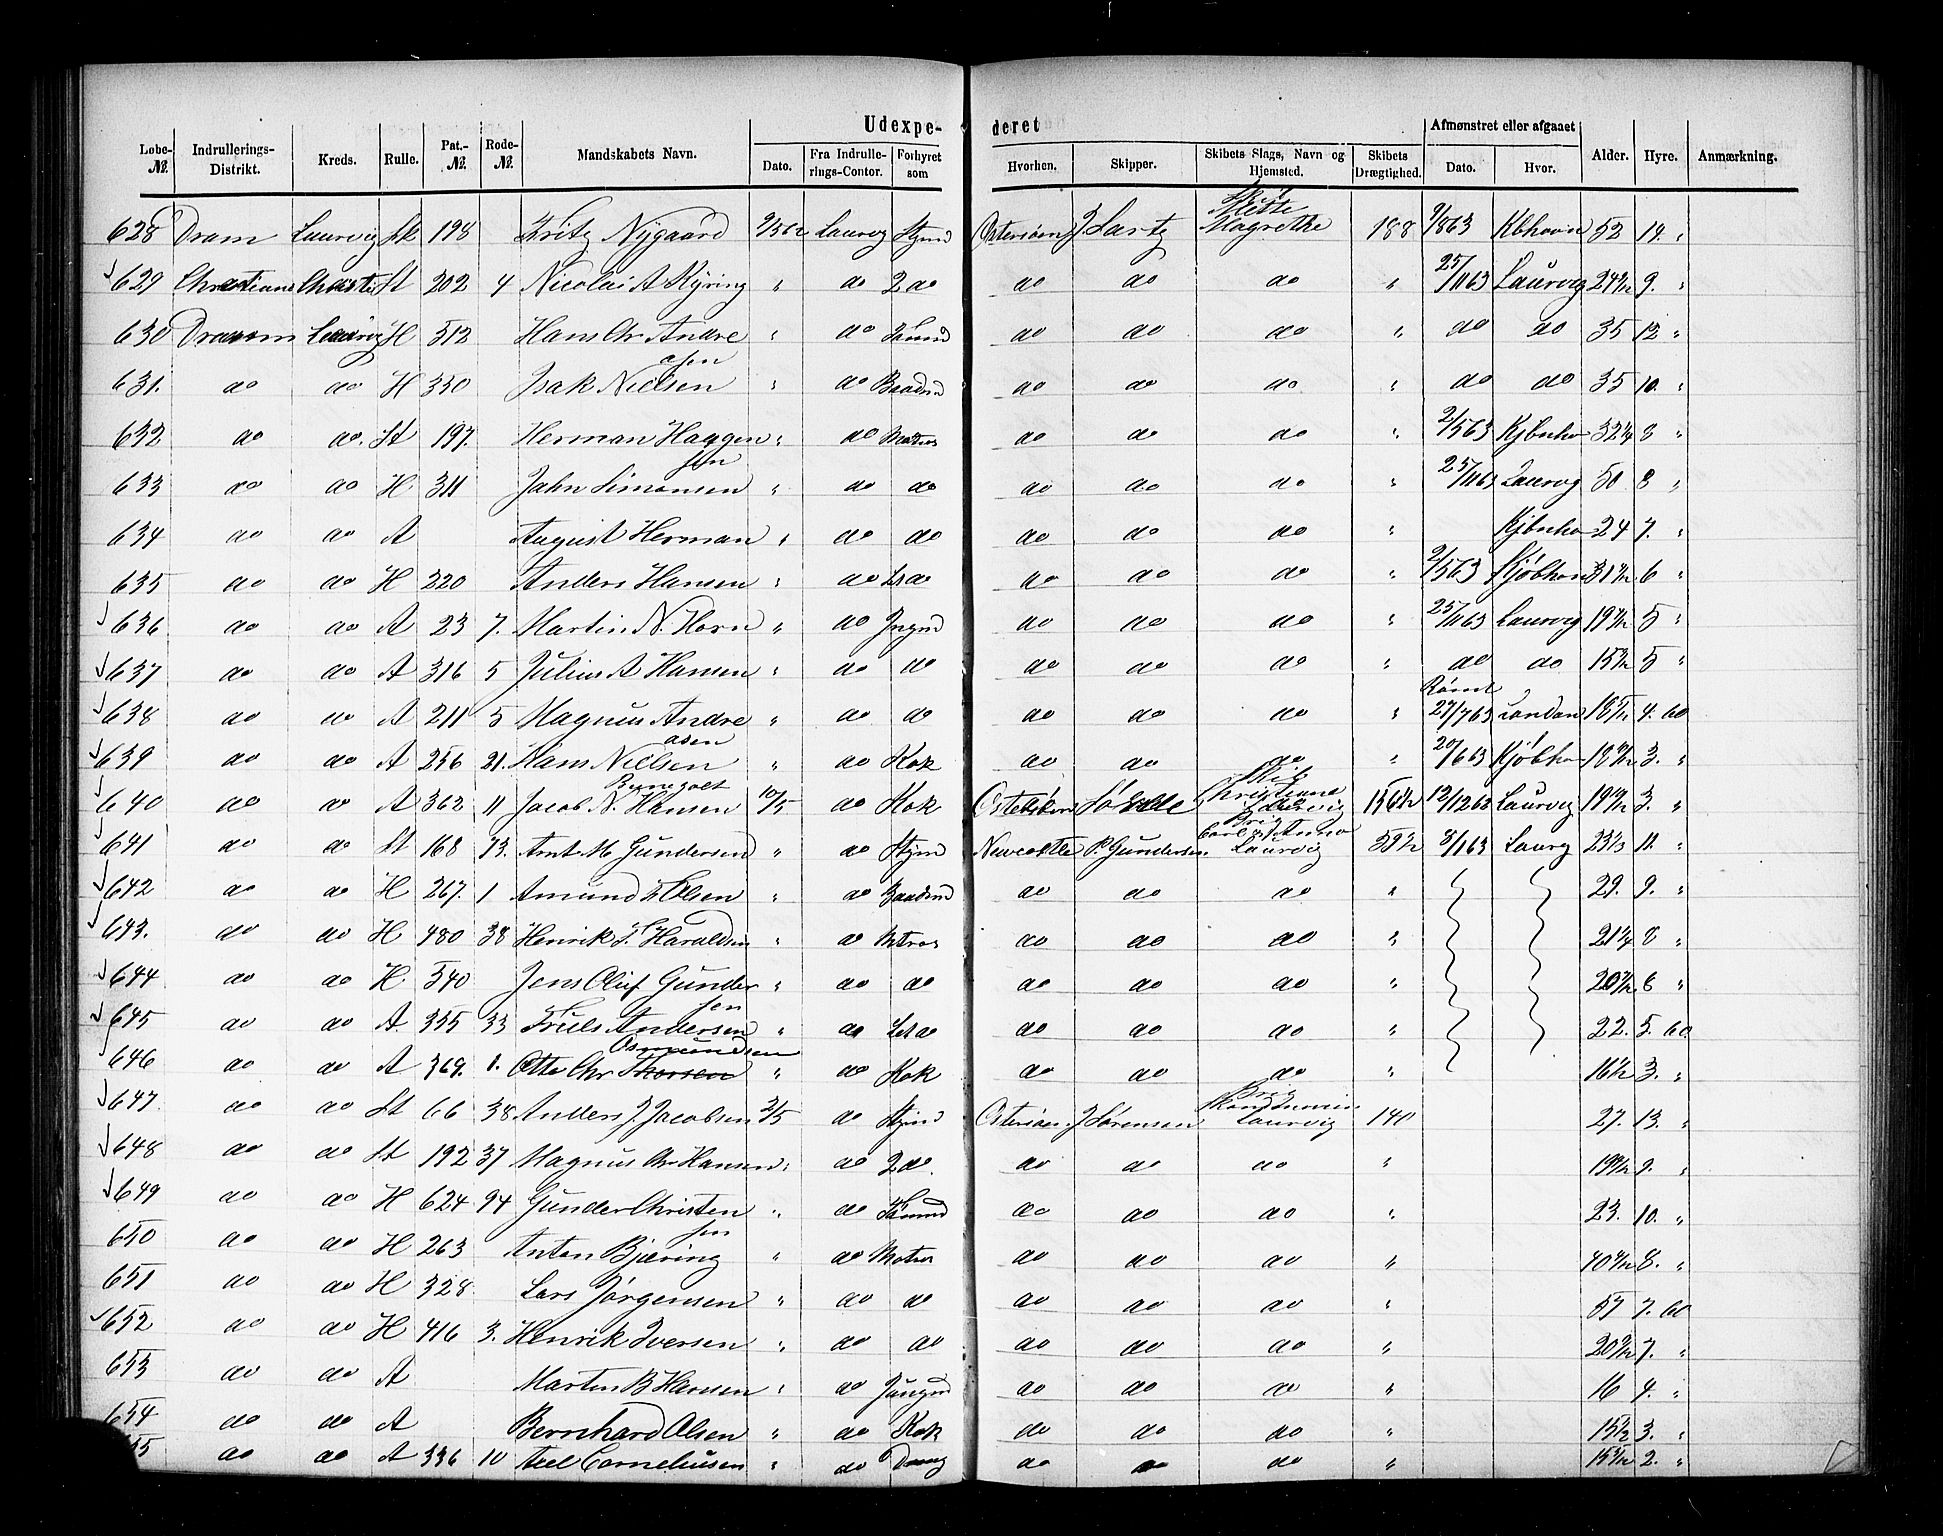 Udexpe- deret
Løbe-№. Indrullerings-Distrikt. Kreds. Rulle. Pat.-№. Rode-№. Mandskabets Navn. Dato. Fra Indrulle-rings-Contor. Forhyret som Hvorhen. Skipper. Skibets Slags, Navn og Hjemsted. Skibets Drægtighed. Afmønstret eller afgaaet Dato. Hvor. Alder. Hyre. Anmærkning.
628 Dram Laurvig St 198 Fritz Nygaard Laurvig Stymd Østersøen Skib Mette Magrethe 188 52 14. "
629 Christians Christi St 202 4 Nicolai A Kyring " do 2 do do do do " 25/1163 Laurvig 9. "
630 Dramm Laurvig H 312 Hans Chr Andreasen " do Tømmd do do do " do do 35 12 "
631. do do H 350 Isak Nielsen " do Baadsmd do do do " do do 35 10. "
632 do do. St 197. Herman Haagensen " do Matros do do do " 2/563 Kjbnha 8 "
633 do do H 311 John Simonsen " do do do do do " 25/1163 Laurvig 50 8 "
634 do do A August Herman " do do do do do " Kjbnha 24 7. "
635 do do H 220 Anders Hansen " do do do do " 2/563 Kjøbhavn 6 "
636 do do A 23 7. Martin N. Horn " do Jngmd do do do " 25/1163 Laurvig 5 "
637 do do A 316 5 Julius A Hansen " do do do do do " do do 5 "
638 do do A 211 5 Magnus Andreasen " do do do do do " Rømt 27/763 London 4. 60
639 do do A 256 21. Hans Nielsen " do Kok do do do " 20/663 Kjøbha 3. "
640 do do A 362 11 Jacob N. Hansen 10/5 do Kok Skib Christiane Laurvig 156½ 12/1262 Laurvig 3. "
641 do do St 168 73. Amt M Gundersen " do Stymd Newcastle P. Gundersen Brig Carl & Anna Laurvig 8/163 Laurg 11. "
642 do do H 267. 1 Amund Olsen " do Baadsmd do do do " 29. 9. "
643. do do H 480 38 Henrik J. Haraldsen " do Mtros do do do " 8 "
644 do do H 340 Jens Oluf Gundersen " do do do do do " 6 "
645 do do A. 355 33 Truls Andersen " do do do do " 22. 5. 60
646 do do A 369. 1. Otto Chr Thorsen Osmundsen " do Kok do do do " 16½ 3. "
647. do do St 66 38 Anders J Jacobsen 2/5 do Stymd Østersøen J Sørensen Brig Skandinavien Laurvig 140 27. 13. "
648 do do St 192 37 Magnus Chr Hansen " do 2 do do do do " 9. "
649 do do H 624 94 Gunder Christensen " do Tømmd do do do " 23. 10. "
650 do do H 263 Anton Bjæring " do Matros do do do " 8. "
651 do do H 328 Lars Jørgensen " do do do do do " 57 7. 60
652 do do H 416 3. Henrik Iversen " do do do do do " 7. "
653 do do A Martin B Hansen " do Jungmd do do do " 16 4. "
654 do do A Bernhard Olsen " do Kok do do do " 15½ 3. "
do do A 336 10 Axel Corneliusen " do do do do " 2. "